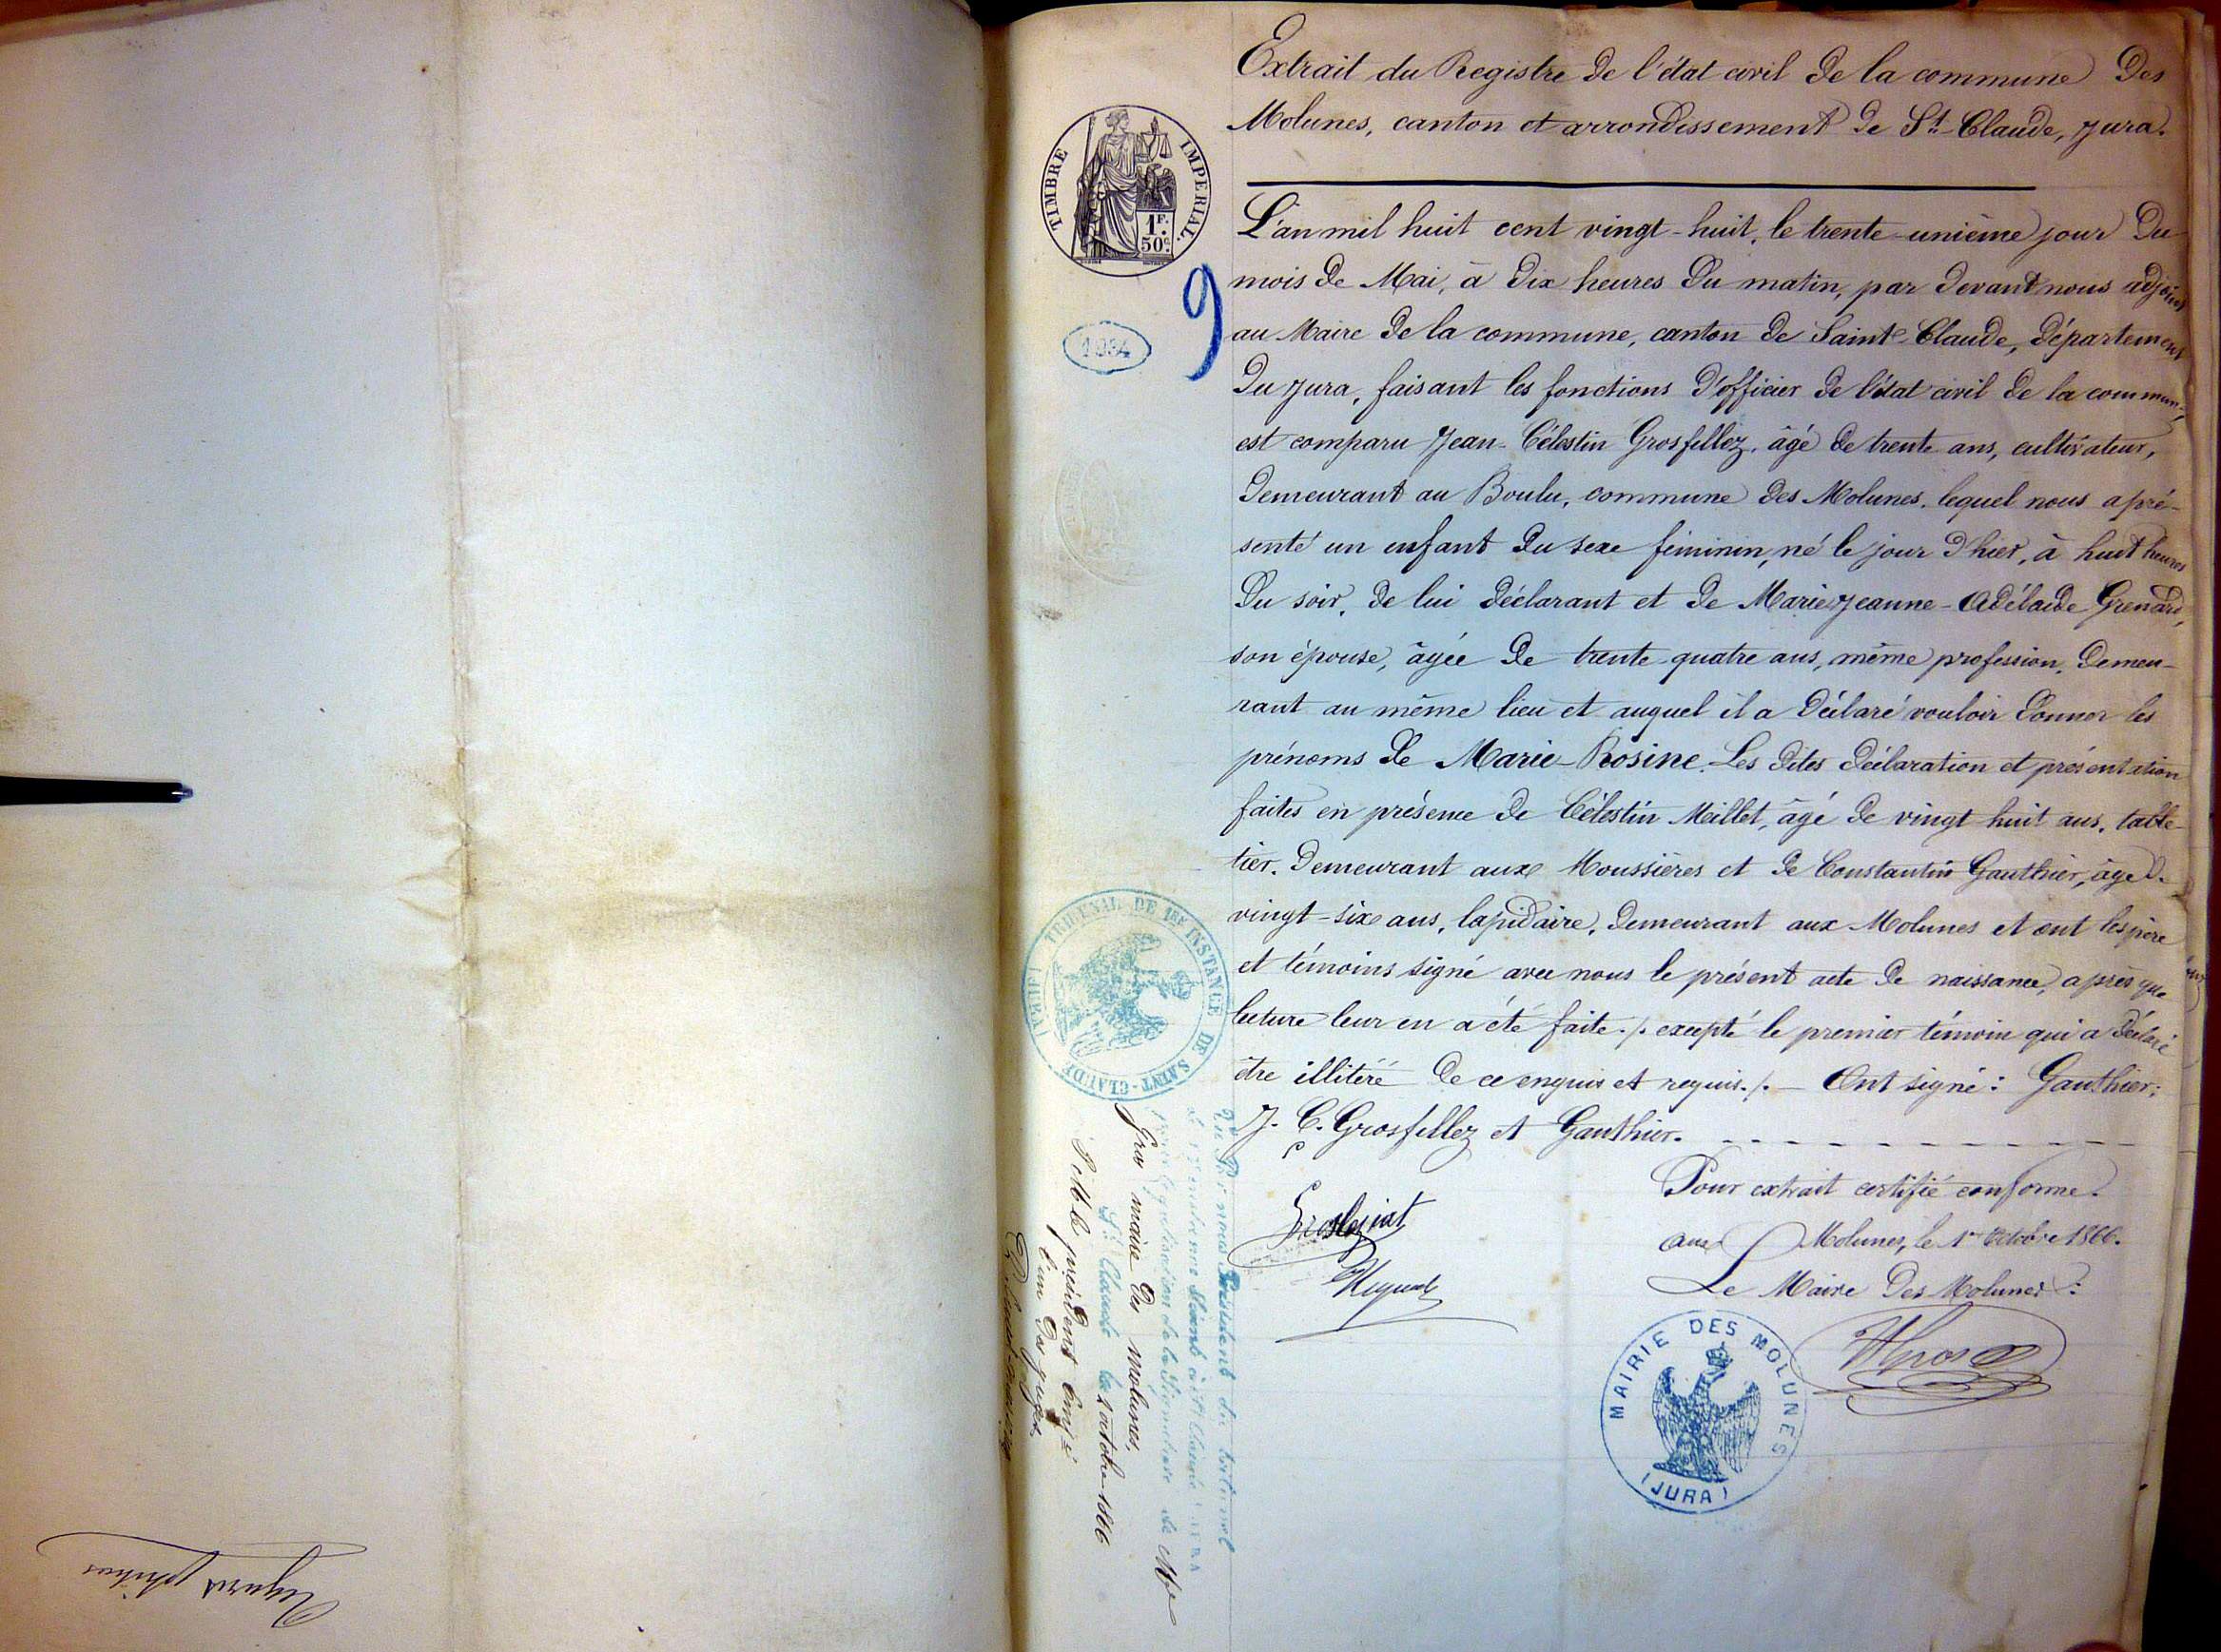 Extrait du Registre de l'état civil de la commune des
Molunes, canton et arrondissement de St-Claude, Jura.
TIMBRE IMPERIAL
1F.
50c
9
1934
L'an mil huit cent vingt-huit, le trente-unième jour du
mois de Mai, à dix heures du matin, par devant nous adjoint
au Maire de la commune, canton de Saint-Claude, département
du Jura, faisant les fonctions d'officier de l'état civil de la commune,
est comparu Jean-Célestin Grosfillez, âgé de trente ans, cultivateur,
demeurant au Boulu, commune des Molunes, lequel nous a pré-
senté un enfant du sexe féminin, né le jour d'hier, à huit heures
du soir, de lui déclarant et de Marie-Jeanne-Adélaïde Grenard,
son épouse, âgée de trente-quatre ans, même profession, demeu-
rant au même lieu et auquel il a déclaré vouloir donner les
prénoms de Marie-Rosine. Les dites déclaration et présentation
faites en présence de Célestin Millet, âgé de vingt huit ans, table-
tier, demeurant aux Moussières et de Constantin Gauthier, âgé de
vingt-six ans, lapidaire, demeurant aux Molunes et ont les père
et témoins signé avec nous le présent acte de naissance, après que
lecture leur en a été faite ./. excepté le premier témoin qui a déclaré
être illitéré de ce enquis et requis ./. — Ont signé : Gauthier;
J. C. Grosfillez et Gauthier.
Pour extrait certifié conforme.
aux Molunes, le 1er Octobre 1866.
Le Maire des Molunes :
MAIRIE DES MOLUNES
(JURA)
TRIBUNAL DE 1RE INSTANCE DE SAINT-CLAUDE (JURA)
Vu Par nous Président du tribunal
de première séant à St Claude JURA
légalisation de la signature de Mr
Gros maire des molunes.
St Claude le 2 octobre 1866
P. Mr le président emp.é
l'un des juges